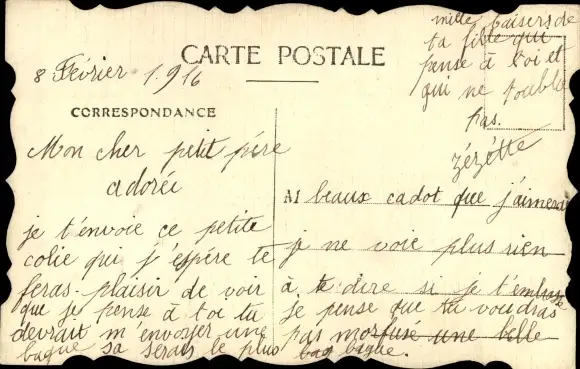 CARTE POSTALE
8 Février 1.916
CORRESPONDANCE
Mon cher petit père
adorée
je t'envoie ce petite
colie qui j'espére te
feras-plaisir de voir
que je pense à toi tu
devrait m'envoyer une
bague sa serais le plus
beaux cadot que j'aimerai
je ne voie plus rien
à te dire si je t'embrasse
je pense que tu voudras
pas morfuse une belle
bag bague.
mille baisers de
ta fille qui
pense à toi et
qui ne t'oublie
pas.
Zézétte